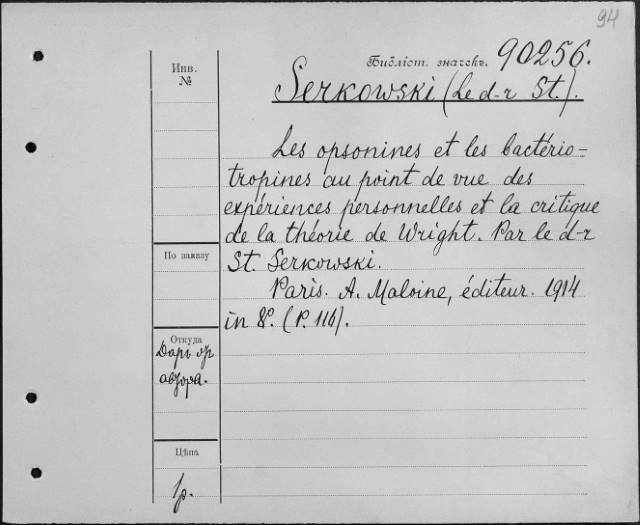 94
Библіот. значекъ. 90256.
Инв.
№
Serkowski (Le d-r St.).
Les opsonines et les bactério-
tropines au point de vue des
expériences personnelles et la critique
de la théorie de Wright. Par le d-r
По заказу
St. Serkowski.
Paris. A. Maloine, éditeur. 1914
in 8°. (P. 116).
Откуда
Даръ
автора.
Цѣна
1р.